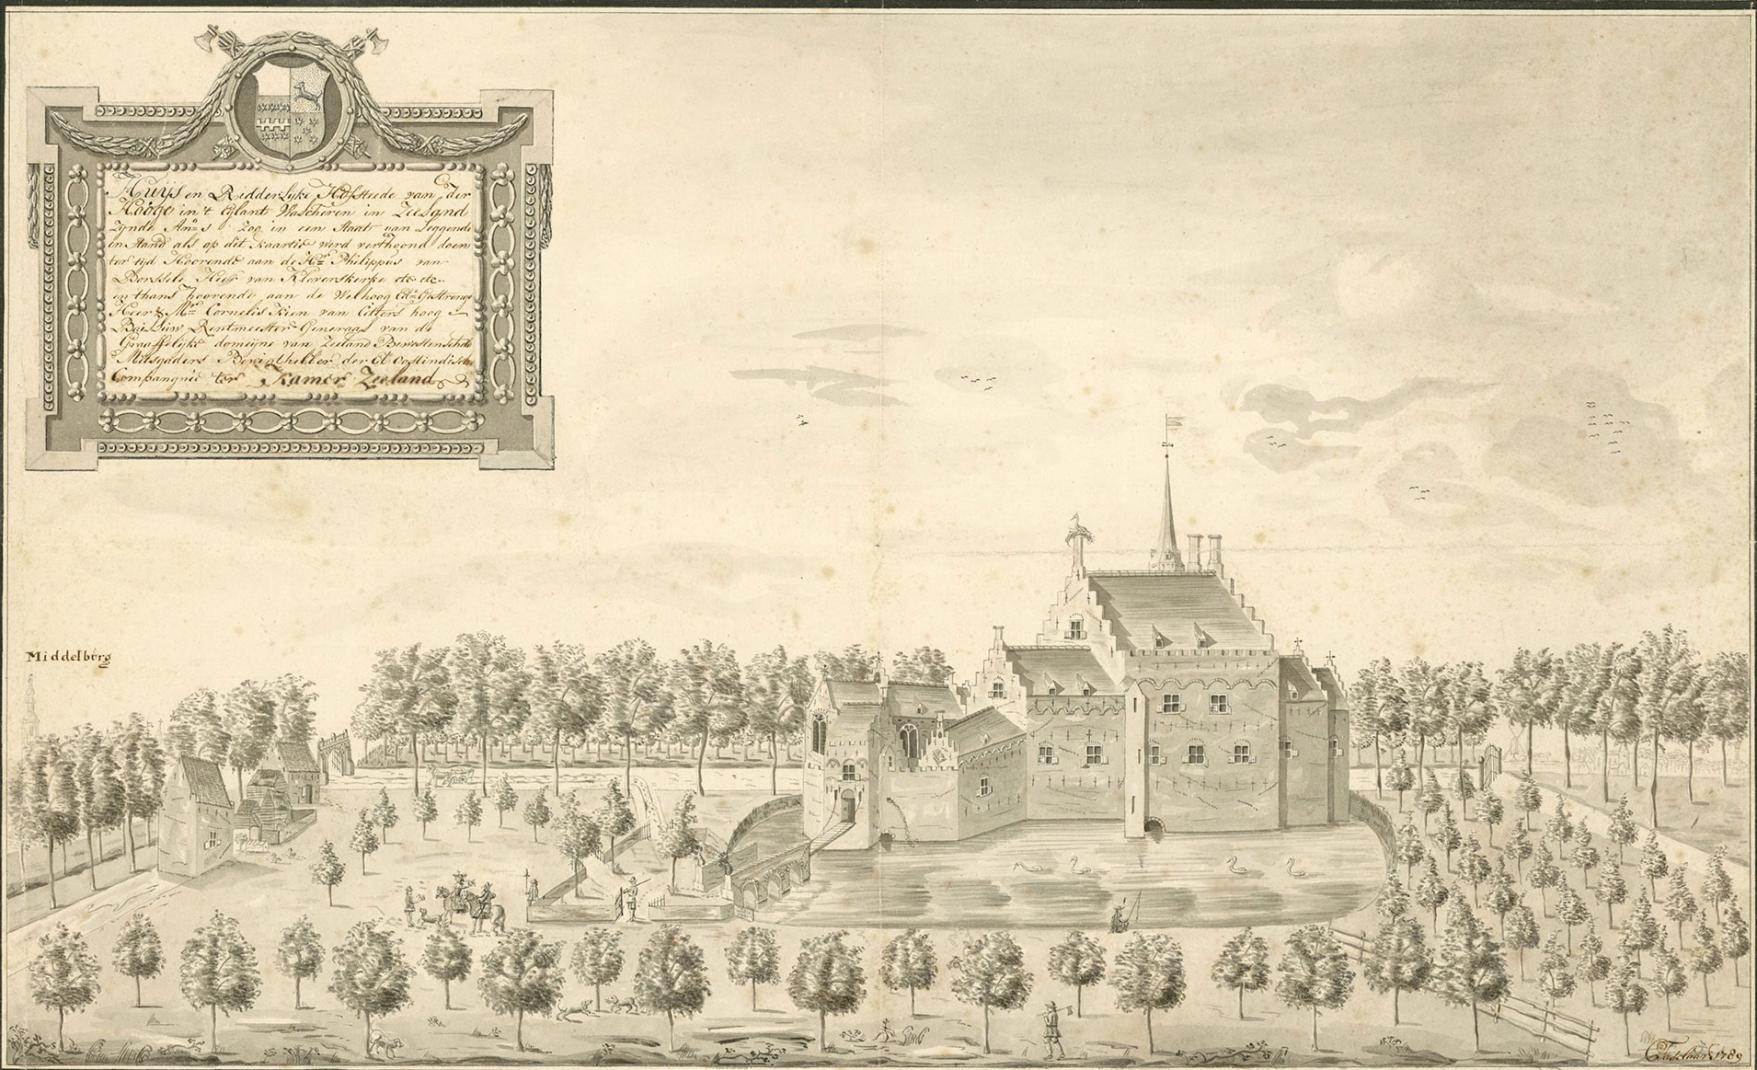 Huijs en Ridderlyke Hofstede van der
Hooge in 't Eylant Walcheren in Zeeland
Zynde Anno 1200 in een Staat van Leggende
en Stand als op dit kaartie werd verthoond doen
ter tijd Hoorende aan de Hr. Philippus van
Borssele Heer van Kleverskerke etc etc.
en thans hoorende aan de Welhoog Edle Gestrenge
Heer Mr. Cornelis Kien van Citters hoog
Bailiuw Rentmeester Generaal van de
Graaffelyke domeijne van Zeeland Bewestenscheld
Mitsgaders Bewinthebber der Oostindische
Compangnie ter Kamer Zeeland
Middelbúrg
1789